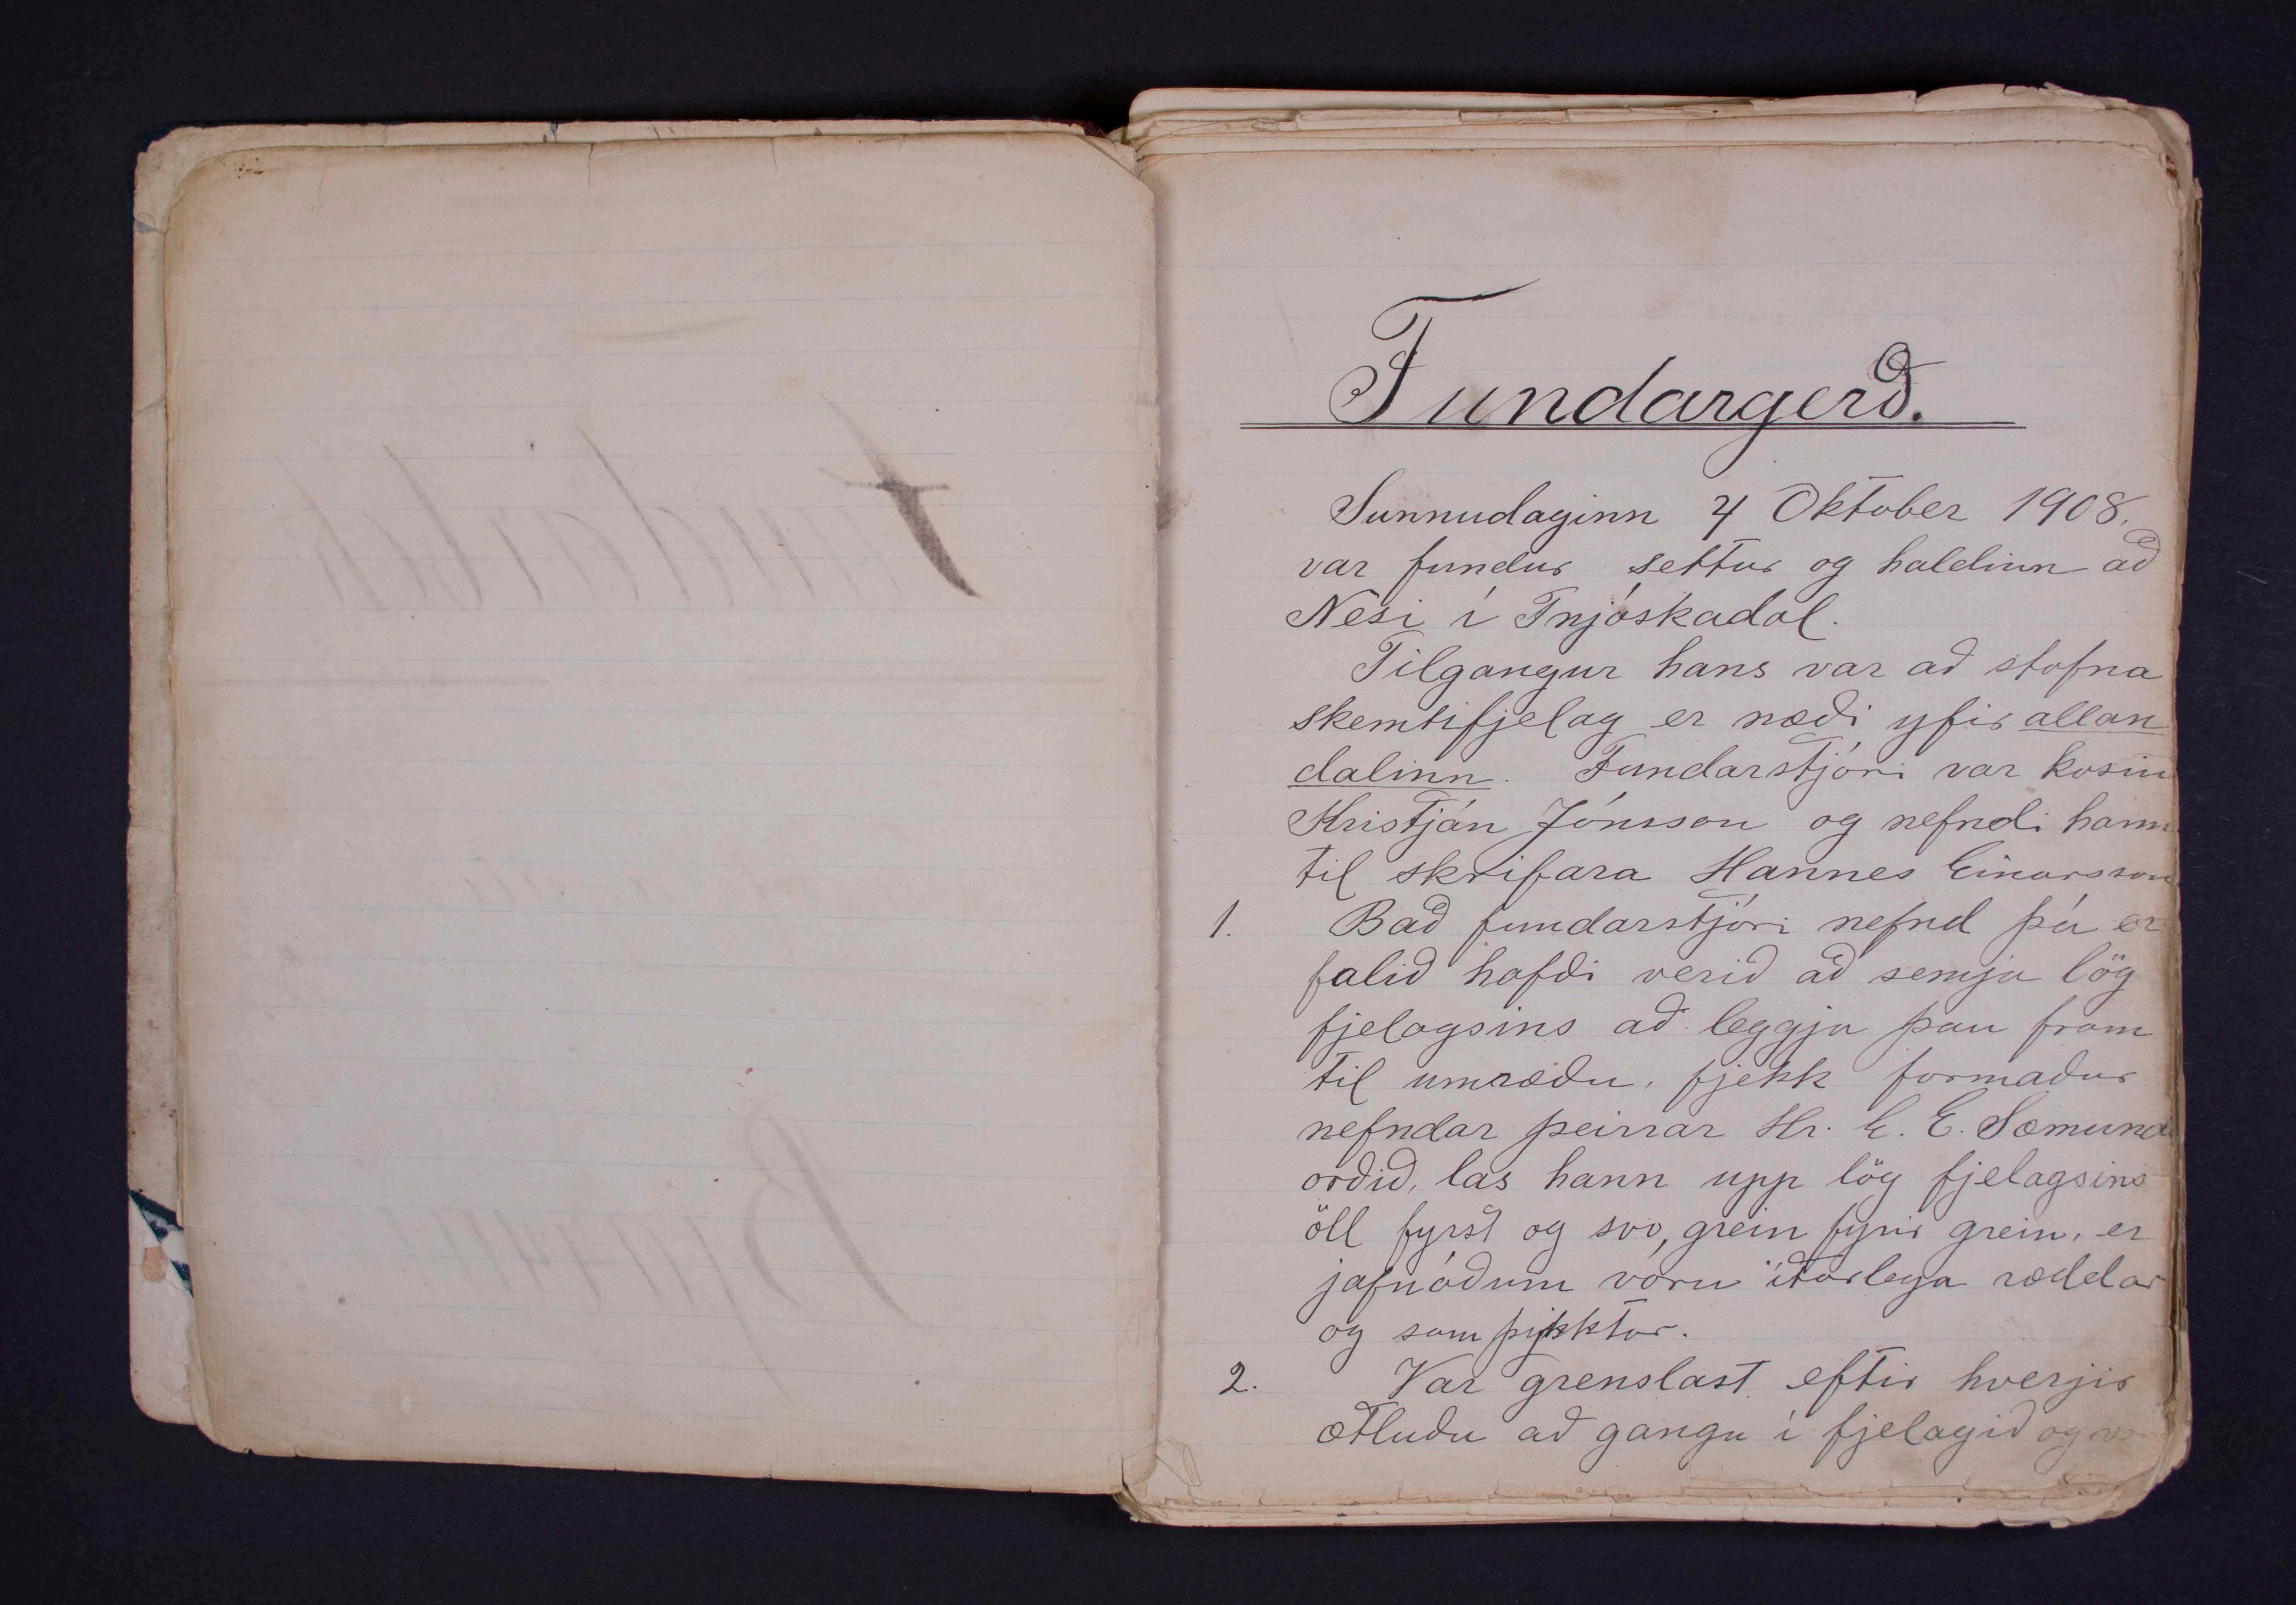 Fundargerð.
Sunnudaginn 4 Oktober 1908.
var fundur settur og haldinn að
Nesi í Fnjóskadal.
Tilgangur hans var að stofna
skemtifjelag er næði yfir allan
dalinn. Fundarstjóri var kosin
Kristján Jónsson og nefndi hann
til skrifara Hannes Einarsson
1. Bað fundarstjóri nefnd þá er
falið hafði verið að semja lög
fjelagsins að leggja þau fram
til umræðu, fjekk formaður
nefndar þeirrar Hr. E. E. Sæmund
orðið, las hann upp lög fjelagsins
öll fyrst og svo, grein fyrir grein, er
jafnóðum voru ítarlega ræddar
og samþykktar.
2. Var grenslast eftir hverjir
ætluðu að ganga í fjelagið og